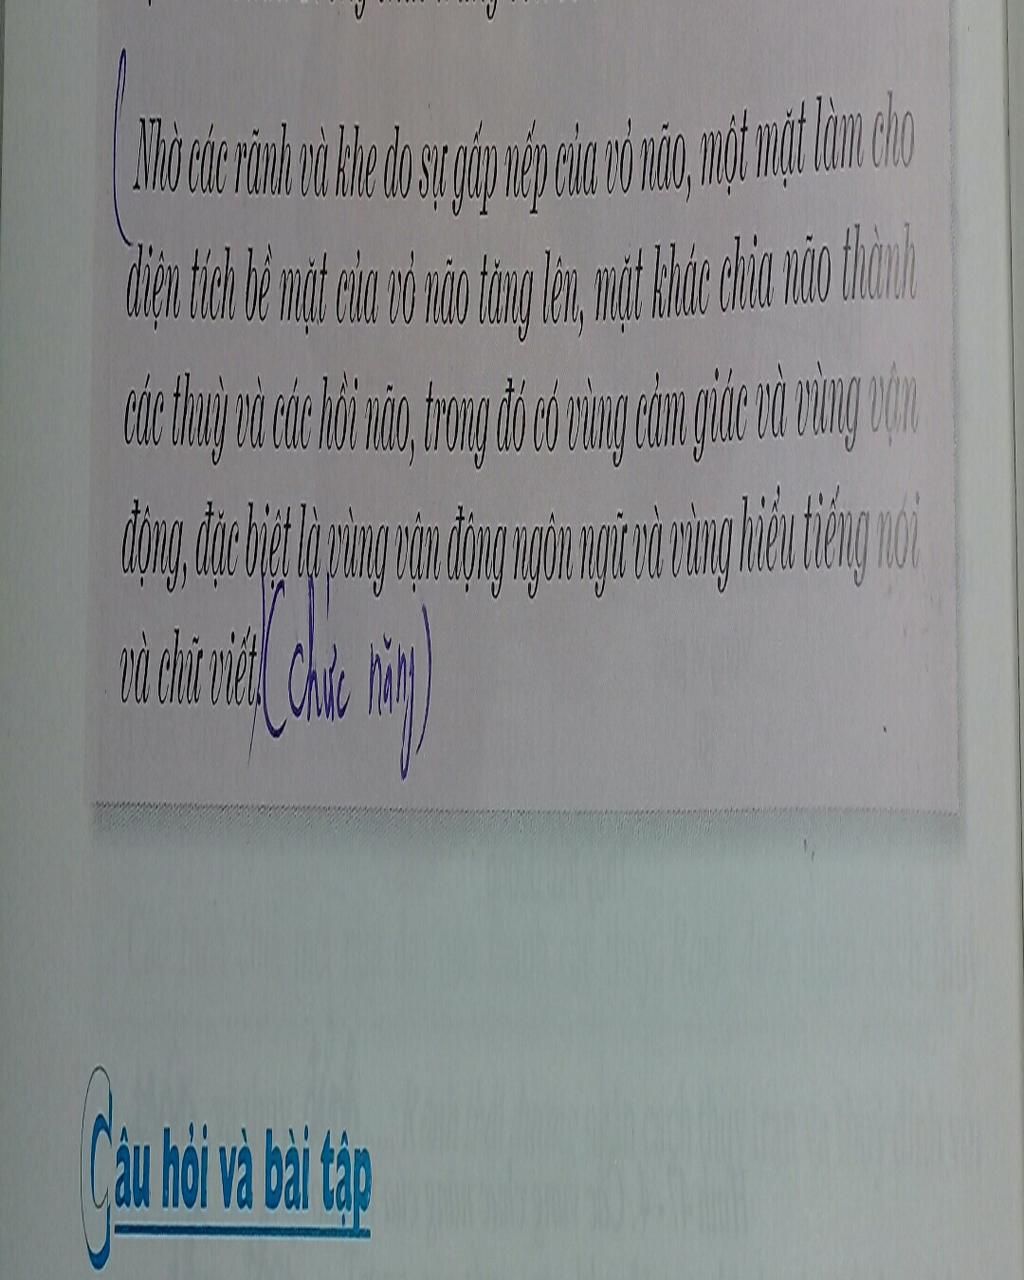 Nhờ các rãnh và khe do sự gấp nếp của vỏ não, một mặt làm cho
diện tích bề mặt của vỏ não tăng lên, mặt khác chia não thành
các thuỳ và các hồi não, trong đó có vùng cảm giác và vùng vận
động, đặc biệt là vùng vận động ngôn ngữ và vùng hiểu tiếng nói
và chữ viết. (chức năng)
Câu hỏi và bài tập